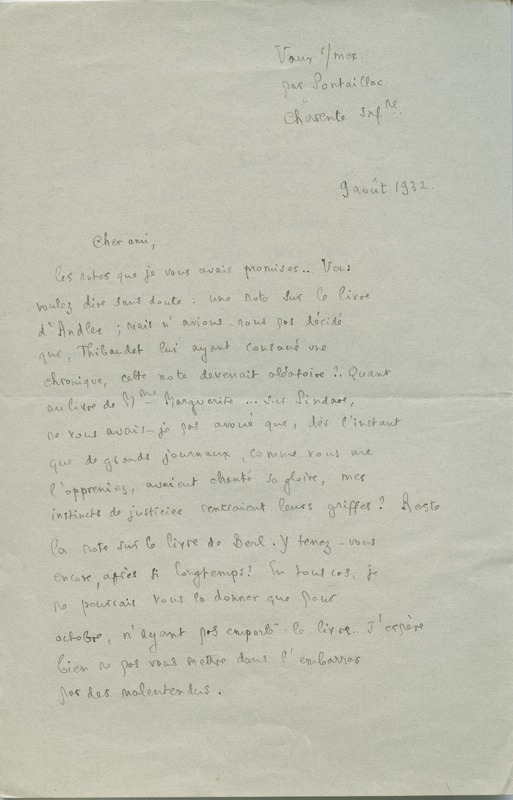 Vaux s/mer
par Pontaillac
Charente Infre.
9 août 1932.
Cher ami,
les notes que je vous avais promises.. Vous
voulez dire sans doute : une note sur le livre
d'Andler ; mais n'avions-nous pas décidé
que, Thibaudet lui ayant consacré une
chronique, cette note devenait aléatoire ?. Quant
au livre de Mme Marguerite ... sur Pindare,
ne vous avais-je pas avoué que, dès l'instant
que de grands journaux, comme vous me
l'appreniez, avaient chanté sa gloire, mes
instincts de justicier rentraient leurs griffes ? Reste
la note sur le livre de Berl. Y tenez-vous
encore, après si longtemps ? En tous cas, je
ne pourrais vous la donner que pour
octobre, n'ayant pas emporté le livre.. J'espère
bien ne pas vous mettre dans l'embarras
par des malentendus.